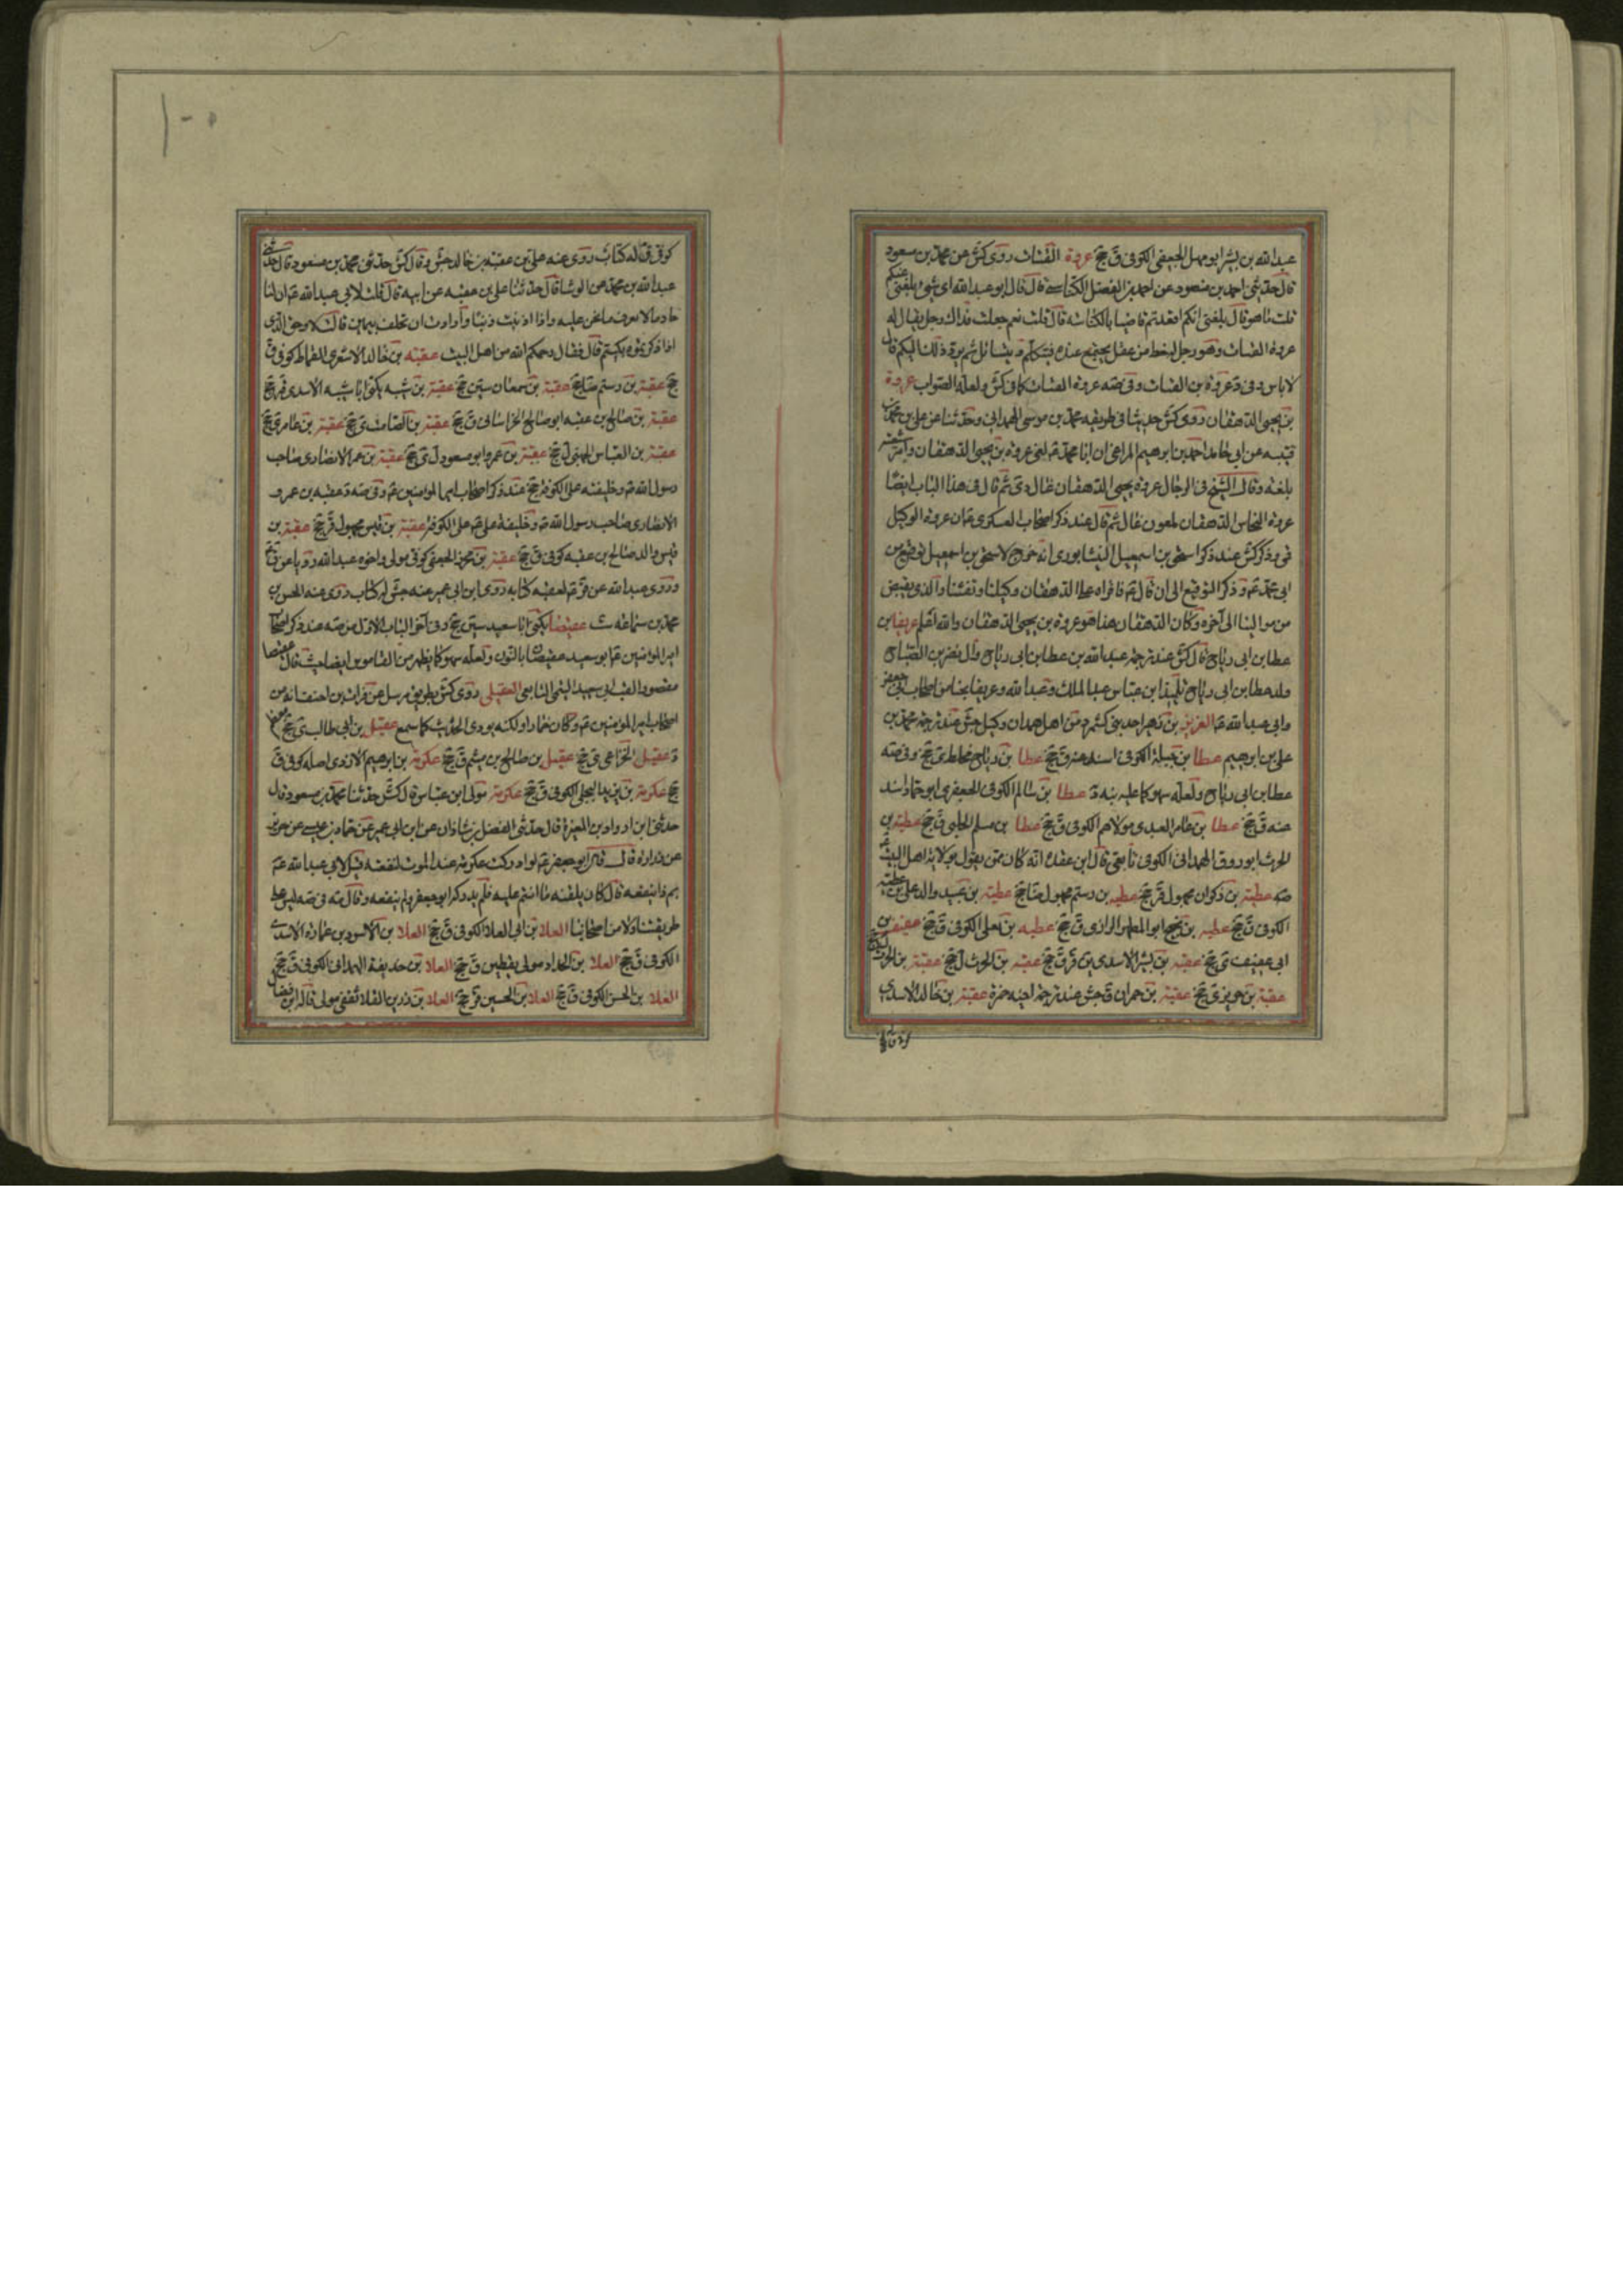 عبدالله بن بشر ابو سهل الجعفى الكوفى ق جخ عروة القتات روى كش عن محمد بن مسعود
قال حدثنى احمد بن منصور عن احمد بن الفضل الكناسى قال قال ابو عبدالله اى شئ بلغنى عنكم
قلت ما هو قال بلغنى انكم اقعدتم قاضيا بالكناسه قال قلت نعم جعلت فداك رجل يقال له
عروة القتات وهو رجل له حظ من عقل يجتمع عنده فيتكلم و يتسائل ثم يرد ذلك اليكم قال
لا باس وفى د عروة بن القتات وفى ضه عروة القتات كما فى كش ولعله الصواب عروة
بن يحيى الدهقان روى كش حديثا فى طريقه محمد بن موسى الهمدانى وحدثنا عن على بن محمد بن
قتيبه عن ابى حامد احمد بن ابرهيم المراغى ان ابا محمد ع لعن عروة بن يحيى الدهقان وامر شيعته
بلعنه وقال الشيخ فى الرجال عروة يحيى الدهقان غال دى ثم قال فى هذا الباب ايضا
عروة النخاس الدهقان ملعون غال ثم قال عند ذكر اصحاب العسكرى ع ان عروة الوكيل
قمى وذكر كش عند ذكر اسحق بن اسمعيل النيشابورى انه خرج لاسحق بن اسمعيل توقيع من
ابى محمد ع وذكر التوقيع الى ان قال ع فاقراه على الدهقان وكيلنا وثقتنا والذى يقبض
من موالينا الى آخره وكان الدهقان هذا هو عروة بن يحيى الدهقان والله اعلم عريف بن
عطا بن ابى رباح قال كش عند ترجمة عبدالله بن عطا بن ابى رباح قال نضر بن الصباح
ولد عطا بن ابى رباح تلميذ ابن عباس عبد الملك وعبد الله وعريفا نجبا من اصحاب ابى جعفر
وابى عبدالله ع العزيز بن زهير احد بنى كشمرد من اهل همدان وكيل جش عند ترجمة محمد بن
على بن ابرهيم عطا بن جبلة الكوفى اسند عنه ق جخ عطا بن رباح مخلط ى جخ وفى ضه
عطا بن ابى رباح ولعله سهو كما عليه نبه د عطا بن سالم الكوفى الجعفرى ابو حماد اسند
عنه ق جخ عطا بن عامر العبدى مولاهم الكوفى ق جخ عطا بن مسلم الحلبى ق جخ عطية بن
الحرث ابو روق الهمدانى الكوفى تابعى قال ابن عقدة انه كان ممن يقول بولاية اهل البيت ع
ضه عطية بن ذكوان مجهول قر جخ عطيه بن رستم مجهول ضا جخ عطية بن عبيد والد على بن عطية
الكوفى ق جخ عطيه بن نجيح ابو المطهر الرازى ق جخ عطيه بن يعلى الكوفى ق جخ عفيف بن
ابى عفيف ى جخ عقبه بن بشر الاسدى ين قر ق جخ عقبه بن الحرث ل جخ عقبة بن الحرث
عقبة بن جويز ى جخ عقبة بن حمران ق جش عند ترجمة اخيه حمزة عقبة بن خالد الاسدى
كوفى
كوفى ق له كتاب روى عنه على بن عقبه بن خالد جش وقال كش حدثنى محمد بن مسعود قال حدثنى
عبدالله بن محمد عن الوشا قال حدثنا على بن عقبه عن ابيه قال قلت لابى عبدالله ع ان لنا
خادما لا تعرف ما نحن عليه واذا اذنبت ذنبا وأرادت ان تحلف بيمين قالت لا وحق الذى
اذا ذكرتموه بكيتم قال فقال رحمكم الله من اهل البيت عقبه بن خالد الاشعرى القماط كوفى ق
جخ عقبة بن رستم ضا جخ عقبة بن سمعان سين جخ عقبة بن شيبه يكنى ابا شيبه الاسدى قر جخ
عقبة بن صالح بن عقبه ابو صالح الخراسانى ق جخ عقبة بن الصامت ى جخ عقبة بن عامر ى جخ
عقبة بن العباس الجهنى ل جخ عقبة بن عمرو ابو مسعود ل ى جخ عقبة بن عمر الانصارى صاحب
رسول الله ص وخليفته على الكوفه جخ عند ذكر اصحاب امير المؤمنين ع وفى ضه د عقبه بن عمرو
الانصارى صاحب رسول الله ص وخليفة على ع على الكوفة عقبة بن قيس مجهول قر جخ عقبة بن
قيس والد صالح بن عقبه كوفى ق جخ عقبة بن محرز الجعفى كوفى مولى واخوه عبدالله رويا عن ق ع
وروى عبدالله عن قر ع لعقبه كتابه روى ابن ابى عمير عنه جش له كتاب روى عنه الحسن بن
محمد بن سماعه ست عقيصا يكنى ابا سعيد سين جخ وفى آخر الباب الاول من ضه عند ذكر اصحاب
امير المؤمنين ع ابو سعيد عقيصان بالنون ولعله سهو كما يظهر من القاموس ايضا حيث قال عقيصا
مقصورا لقب ابى سعيد التيمى التابعى العقيلى روى كش بطريق مرسل عن فرات بن احنف انه من
اصحاب امير المؤمنين ع وكان خمارا ولكنه يودى الحديث كما سمع عقيل بن ابى طالب ى جخ
د عقيل الخزاعى ى جخ عقيل بن صالح بن ميثم ق جخ عكرمة بن ابرهيم الازدى اصله كوفى ق
جخ عكرمة بن يزيد البجلى الكوفى ق جخ عكرمة مولى ابن عباس قال كش حدثنا محمد بن مسعود قال
حدثنى ابن ازداد بن المغيرة قال حدثنى الفضل بن شاذان عن ابن ابى عمير عن حماد بن عيسى عن حريز
عن زرارة قال قال ابو جعفر ع لو ادركت عكرمة عند الموت لنفعته قيل لابى عبدالله ع
بم ذا ينفعه قال كان يلقنه ما انتم عليه فلم يدركه ابو جعفر ولم ينفعه وقال مه فى ضه ليس على
طريقتنا ولا من اصحابنا العلا بن ابى العلا الكوفى ق جخ العلا بن الاسود بن عمارة الاسدى
الكوفى ق جخ العلا بن الحداد مولى يقطين ق جخ العلا بن حذيفة الهمدانى الكوفى ق جخ
العلا بن الحسن الكوفى ق جخ العلا بن الحسين قر جخ العلا بن رزين القلا ثقفى مولى قاله ابن فضال